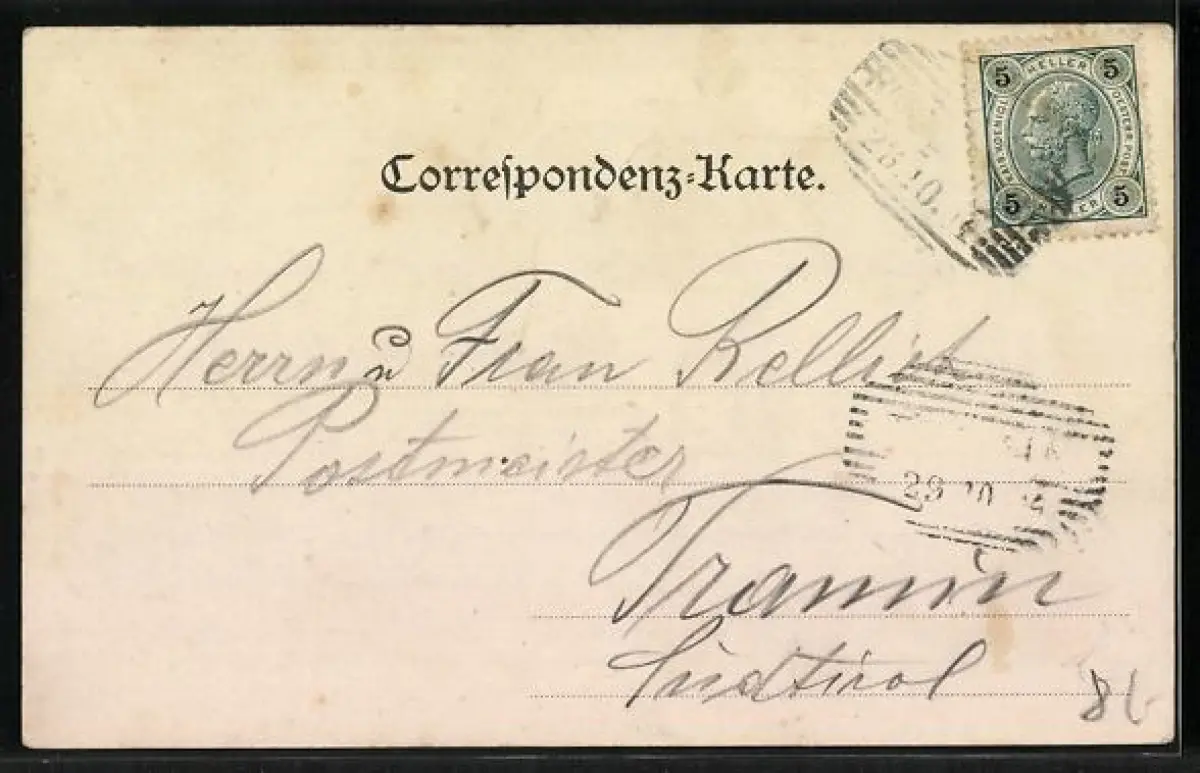 5 HELLER 5
KAIS. KOENIGL. OESTERR. POST
5 HELLER 5
28 10.
Correſpondenz-Karte.
Herrn u Frau Rellich
Postmeister
29 10
Tramin
Südtirol